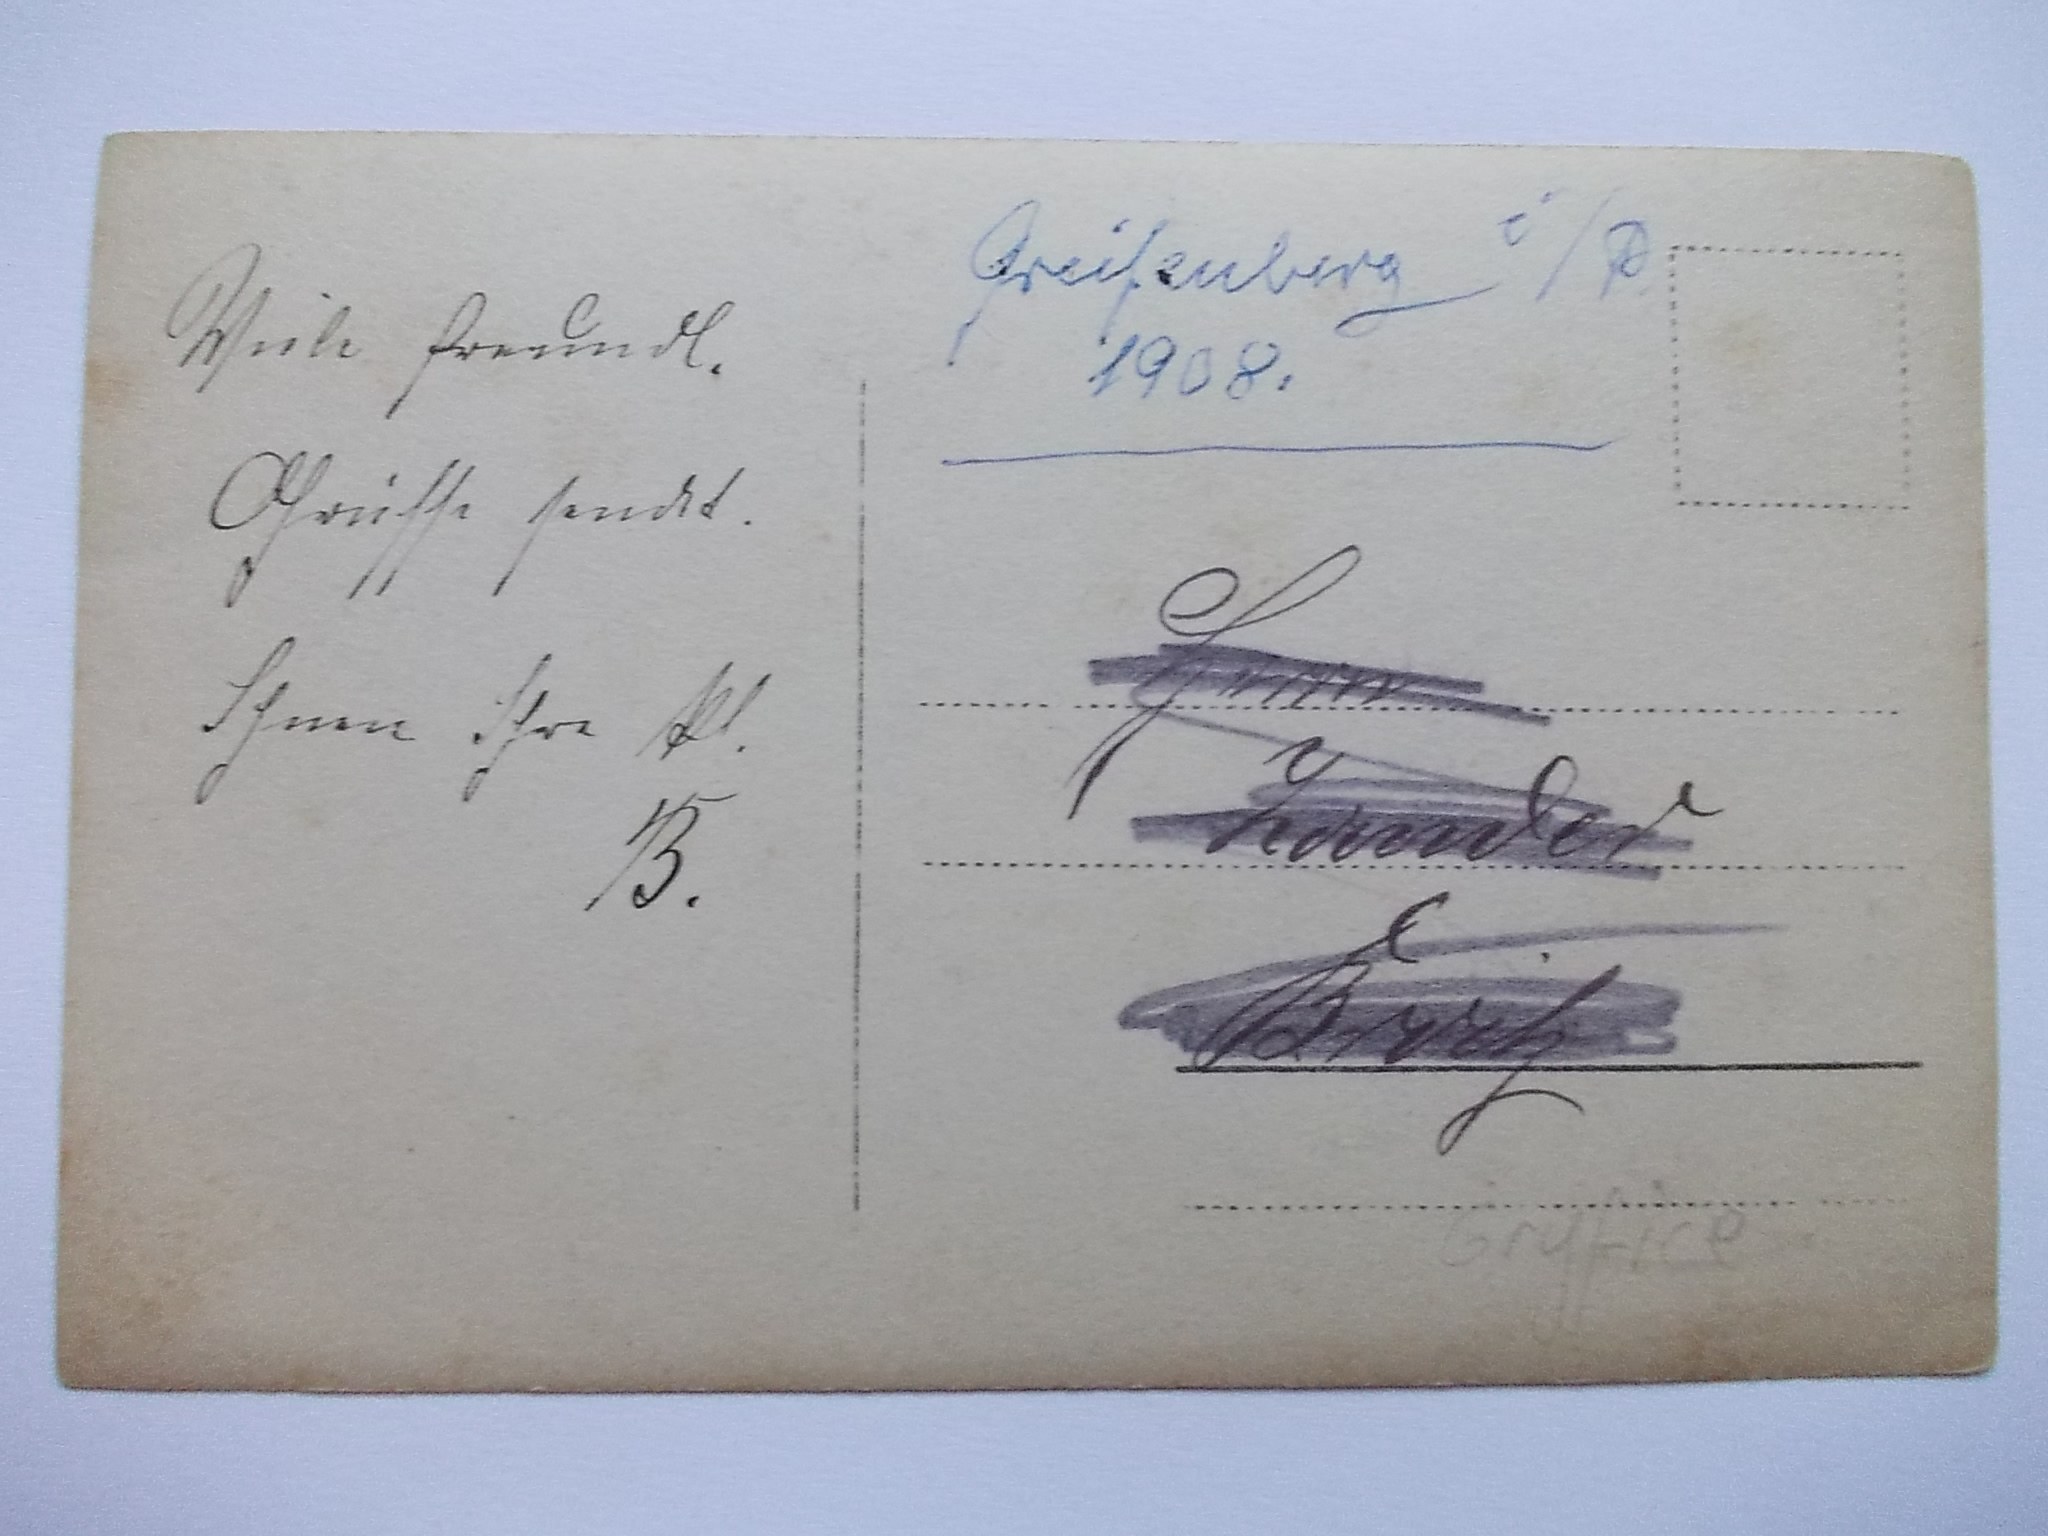 Viele freundl.
Grüsse sendet.
Ihnen Ihre kl.
B.
Greifenberg i/P
1908.
Zander
Gryfice